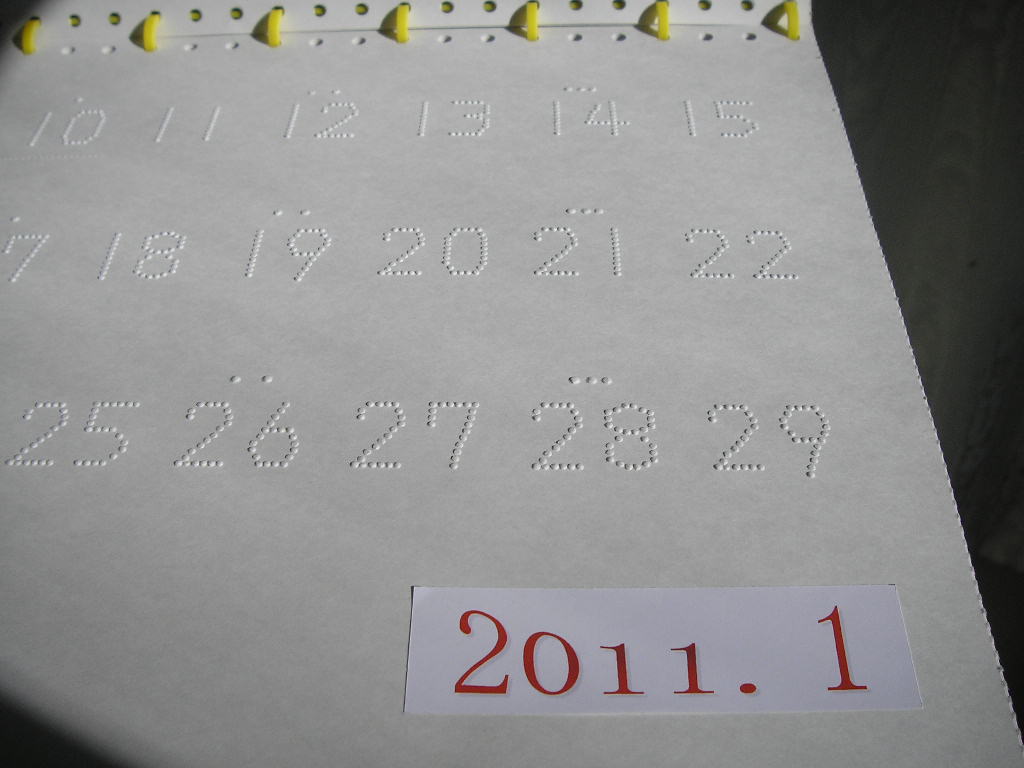 10 11 12 13 14 15
7 18 19 20 21 22
25 26 27 28 29
2011. 1